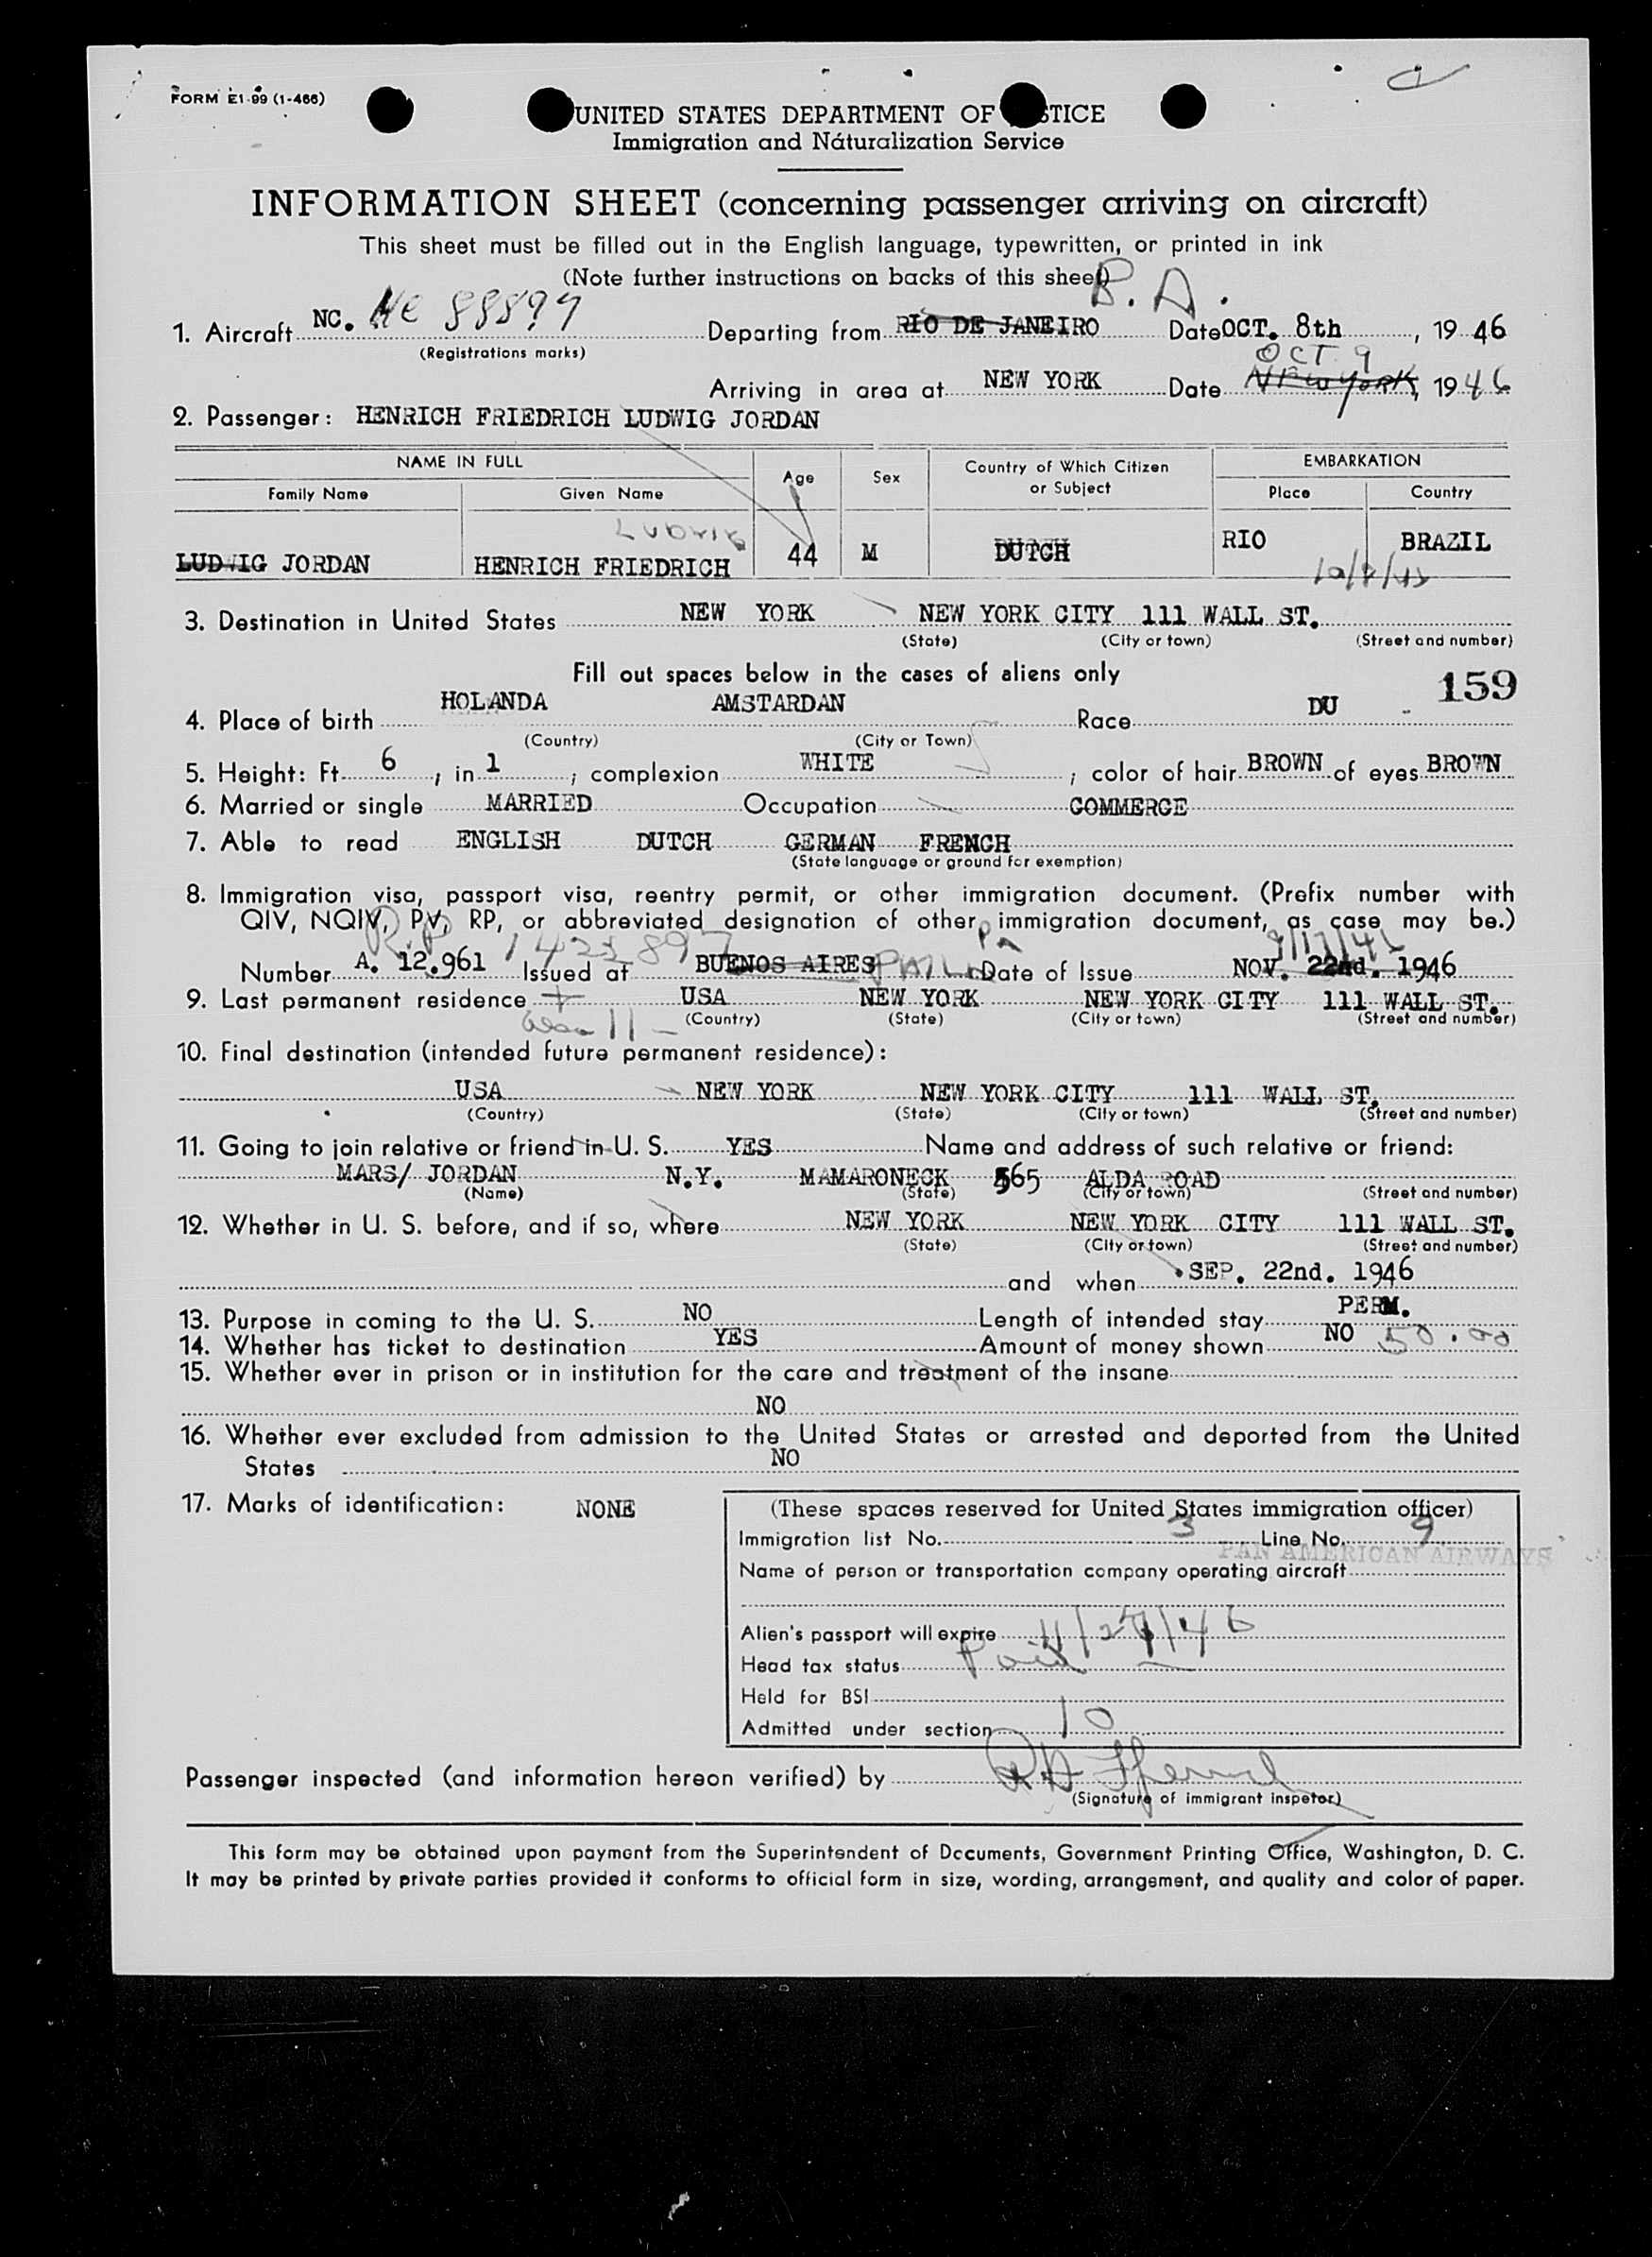 FORM E1-99 (1-466)
UNITED STATES DEPARTMENT OF STICE
Immigration and Naturalization Service
INFORMATION SHEET (concerning passenger arriving on aircraft)
This sheet must be filled out in the English language, typewritten, or printed in ink
(Note further instructions on backs of this sheet)
B. A.
1. Aircraft NC. NC 88899 Departing from RIO DE JANEIRO Date OCT. 8th, 19 46
(Registrations marks)
OCT 9
Arriving in area at NEW YORK Date New York, 19 46
2. Passenger: HENRICH FRIEDRICH LUDWIG JORDAN
NAME IN FULL Age Sex Country of Which Citizen or Subject EMBARKATION
Family Name Given Name Place Country
LUDWIG
LUDWIG JORDAN HENRICH FRIEDRICH 44 M DUTCH RIO BRAZIL
3. Destination in United States NEW YORK NEW YORK CITY 111 WALL ST.
(State) (City or town) (Street and number)
Fill out spaces below in the cases of aliens only
159
4. Place of birth HOLANDA AMSTARDAN Race DU
(Country) (City or Town)
5. Height: Ft. 6, in. 1; complexion WHITE; color of hair BROWN of eyes BROWN
6. Married or single MARRIED Occupation COMMERCE
7. Able to read ENGLISH DUTCH GERMAN FRENCH
(State language or ground for exemption)
8. Immigration visa, passport visa, reentry permit, or other immigration document. (Prefix number with
QIV, NQIV, PV, RP, or abbreviated designation of other immigration document, as case may be.)
R.P. 1423897 Phila Pa
Number A. 12.961 Issued at BUENOS AIRES Date of Issue NOV. 22nd. 1946
9. Last permanent residence USA NEW YORK NEW YORK CITY 111 WALL ST.
(Country) (State) (City or town) (Street and number)
10. Final destination (intended future permanent residence):
USA NEW YORK NEW YORK CITY 111 WALL ST.
(Country) (State) (City or town) (Street and number)
11. Going to join relative or friend in U. S. YES Name and address of such relative or friend:
MARS/ JORDAN N.Y. MAMARONECK 565 ALDA ROAD
(Name) (State) (City or town) (Street and number)
12. Whether in U. S. before, and if so, where NEW YORK NEW YORK CITY 111 WALL ST.
(State) (City or town) (Street and number)
and when SEP. 22nd. 1946
13. Purpose in coming to the U. S. NO Length of intended stay PERM.
14. Whether has ticket to destination YES Amount of money shown NO 50.00
15. Whether ever in prison or in institution for the care and treatment of the insane
NO
16. Whether ever excluded from admission to the United States or arrested and deported from the United
States NO
17. Marks of identification: NONE
(These spaces reserved for United States immigration officer)
Immigration list No. 3 Line No. 9
PAN AMERICAN AIRWAYS
Name of person or transportation company operating aircraft
Alien's passport will expire 11/27/46
Head tax status Paid
Held for BSI
Admitted under section 10
Passenger inspected (and information hereon verified) by
(Signature of immigrant inspetor)
This form may be obtained upon payment from the Superintendent of Documents, Government Printing Office, Washington, D. C.
It may be printed by private parties provided it conforms to official form in size, wording, arrangement, and quality and color of paper.